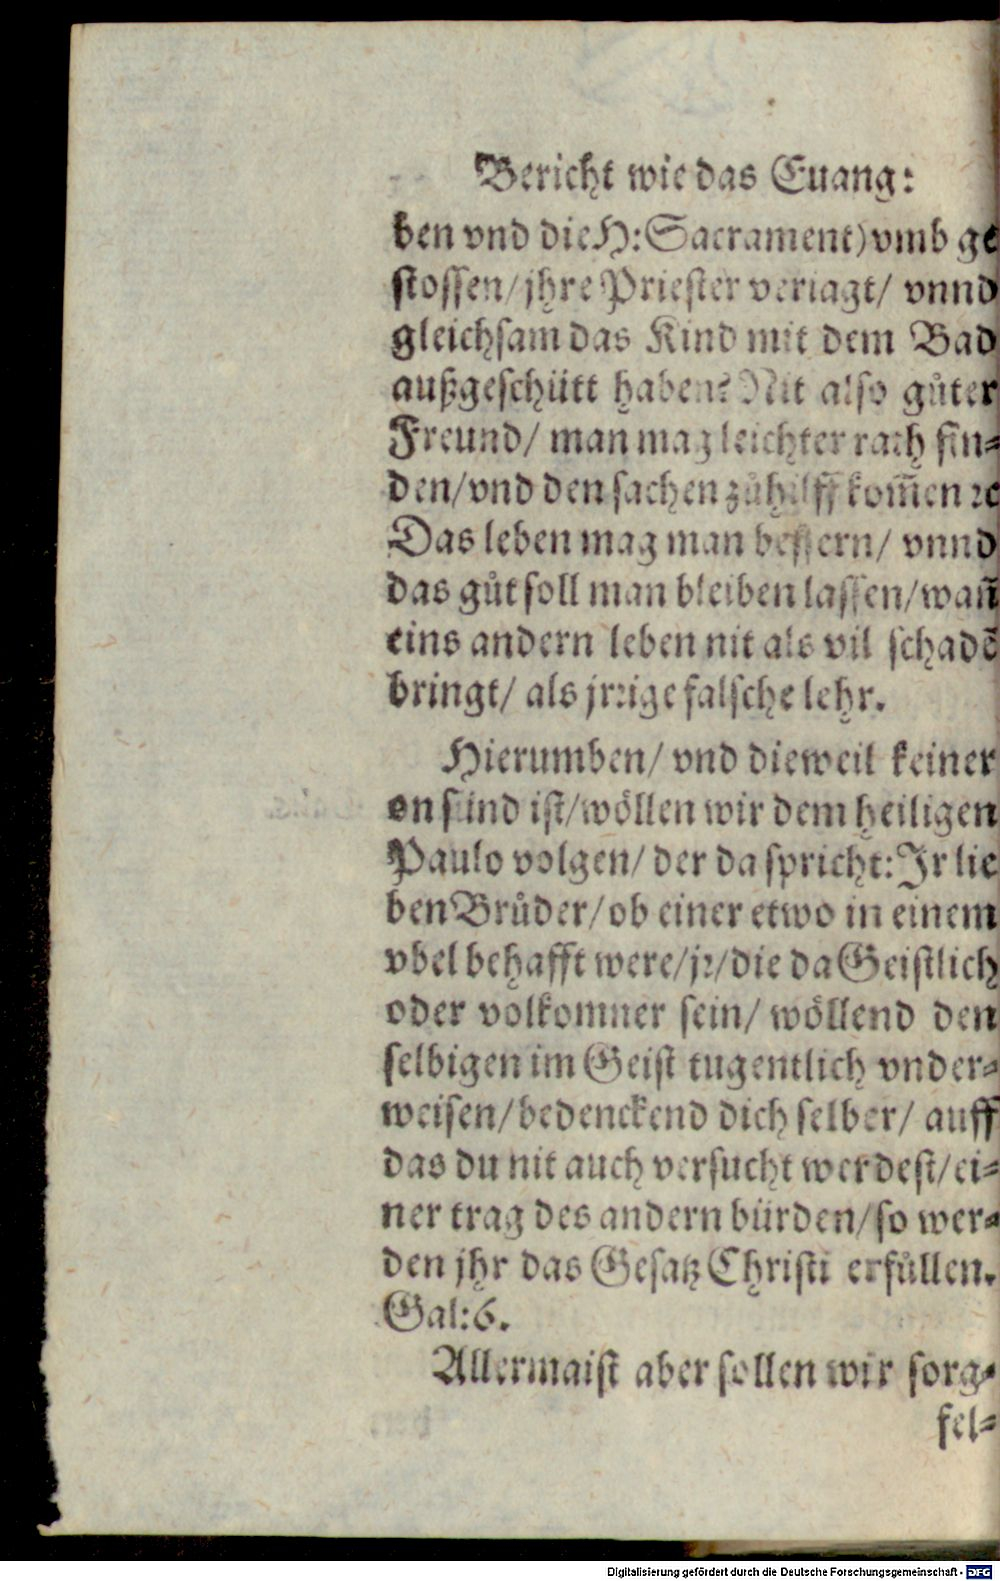 Bericht wie das Euang:
ben vnd die H: Sacrament) vmb ge
stossen/ jhre Priester veriagt/ vnnd
gleichsam das Kind mit dem Bad
außgeschütt haben? Nit also gůter
Freund/ man mag leichter rath fin⸗
den/ vnd den sachen zůhilff kom̃en ꝛc
Das leben mag man bessern/ vnnd
das gůt soll man bleiben lassen/ wañ
eins andern leben nit als vil schadẽ
bringt/ als jrꝛige falsche lehr.
Hierumben/ vnd dieweil keiner
on sünd ist/ wöllen wir dem heiligen
Paulo volgen/ der da spricht: Jr lie
ben Brůder/ ob einer etwo in einem
vbel behafft were/ jꝛ/ die da Geistlich
oder volkomner sein/ wöllend den
selbigen im Geist tugentlich vnder⸗
weisen/ bedenckend dich selber/ auff
das du nit auch versucht werdest/ ei⸗
ner trag des andern bürden/ so wer⸗
den jhr das Gesatz Christi erfüllen.
Gal: 6.
Allermaist aber sollen wir sorg⸗
fel⸗
Digitalisierung gefördert durch die Deutsche Forschungsgemeinschaft - DFG